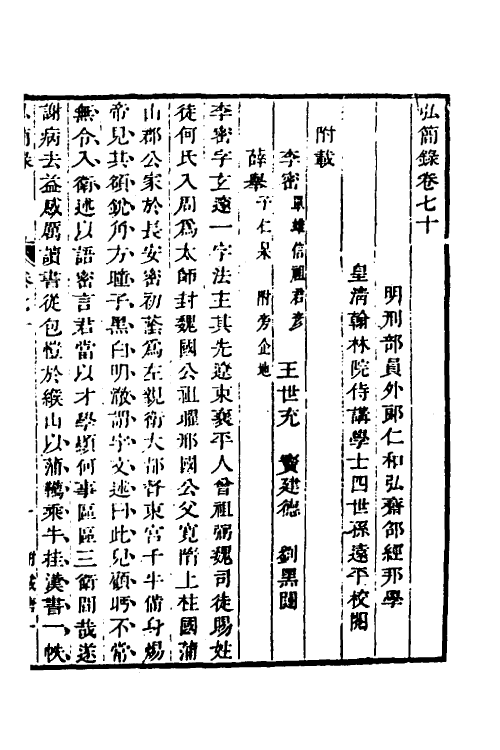 弘簡錄卷七十
明刑部員外郎仁和弘齋邵經邦學
皇清翰林院侍講學士四世孫遠平校閱
附載
李密 單雄信 祖君彥 王世充 竇建德 劉黑闥
薛舉 子仁杲 附旁企地
李密字玄邃一字法主其先遼東襄平人曾祖弼魏司徒賜姓
徒何氏入周爲太師封魏國公祖曜邢國公父寬隋上柱國蒲
山郡公家於長安密初蔭爲左親衛大都督東宮千牛備身煬
帝見其額銳角方瞳子黑白明澈謂宇文述曰此兒顧眄不常
無令入衛述以語密言君當以才學顯何事區區三衛間哉遂
謝病去益感厲讀書從包愷於緱山以蒲韉乘牛挂漢書一帙
弘簡錄
卷七十
一